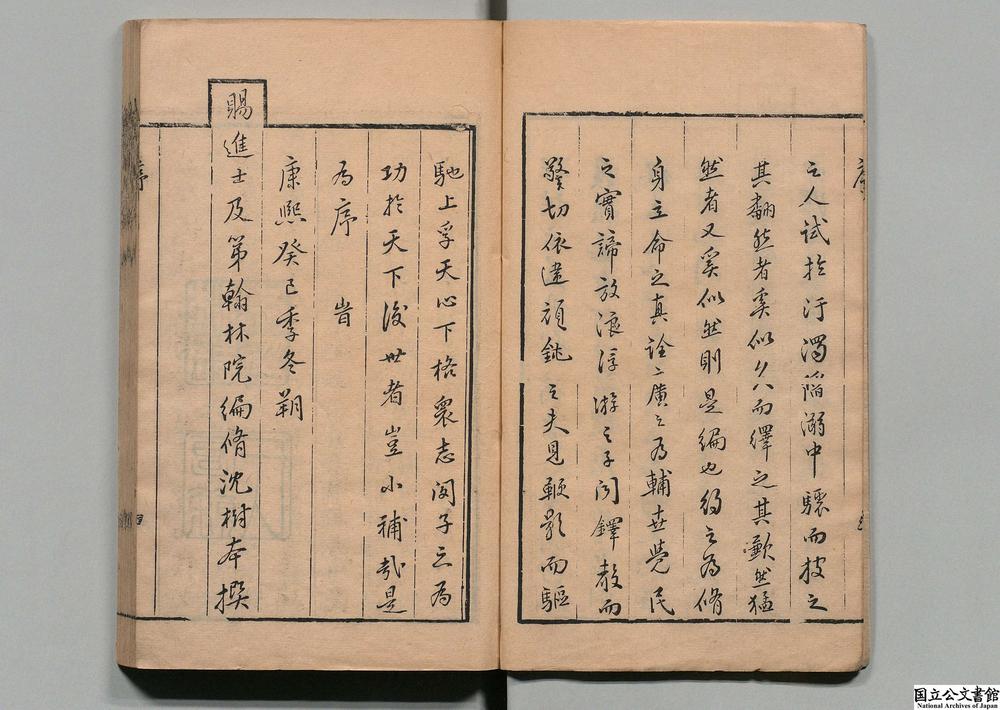 之人試於汙濁陷溺中驟而披之
其翻然者奚似久而繹之其歉然猛
然者又奚似然則是編也約之為脩
身立命之真詮廣之為輔世覺民
之實諦放浪浮游之子聞鐸教而
警切依違頑鈍之夫見鞭影而驅
馳上孚天心下格衆志閔子之為
功於天下後世者豈小補哉是
為序 旹
康熙癸巳季冬朔
賜進士及第翰林院編脩沈樹本撰
序
序
四
国立公文書館
National Archives of Japan